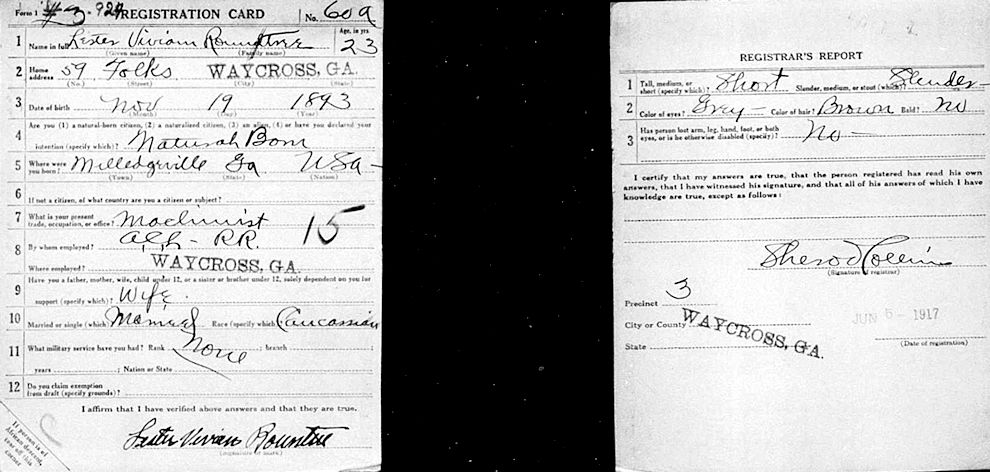 Form 1
REGISTRATION CARD
No. 609
1 Name in full Lester Vivian Rountree
(Given name) (Family name)
Age, in yrs. 23
2 Home address 59 Folks WAYCROSS, GA.
(No.) (Street) (City) (State)
3 Date of birth Nov 19 1893
(Month) (Day) (Year)
4 Are you (1) a natural-born citizen, (2) a naturalized citizen, (3) an alien, (4) or have you declared your
intention (specify which)? Natural Born
5 Where were you born? Milledgeville Ga USA
(Town) (State) (Nation)
6 If not a citizen, of what country are you a citizen or subject?
7 What is your present trade, occupation, or office? Machinist 15
8 By whom employed? A.C.L. - RR.
Where employed? WAYCROSS, GA.
9 Have you a father, mother, wife, child under 12, or a sister or brother under 12, solely dependent on you for
support (specify which)? Wife
10 Married or single (which) Married Race (specify which) Caucassian
11 What military service have you had? Rank None ; branch ;
years ; Nation or State
12 Do you claim exemption from draft (specify grounds)?
I affirm that I have verified above answers and that they are true.
Lester Vivian Rountree
(Signature or mark)
If person is of
African descent,
tear off this
corner
REGISTRAR'S REPORT
1 Tall, medium, or short (specify which)? Short Slender, medium, or stout (which)? Slender
2 Color of eyes? Grey Color of hair? Brown Bald? No
3 Has person lost arm, leg, hand, foot, or both
eyes, or is he otherwise disabled (specify)? No
I certify that my answers are true, that the person registered has read his own
answers, that I have witnessed his signature, and that all of his answers of which I have
knowledge are true, except as follows:
Sherod Collins
(Signature of registrar)
Precinct 3
City or County WAYCROSS, GA.
State
JUN 5 - 1917
(Date of registration)